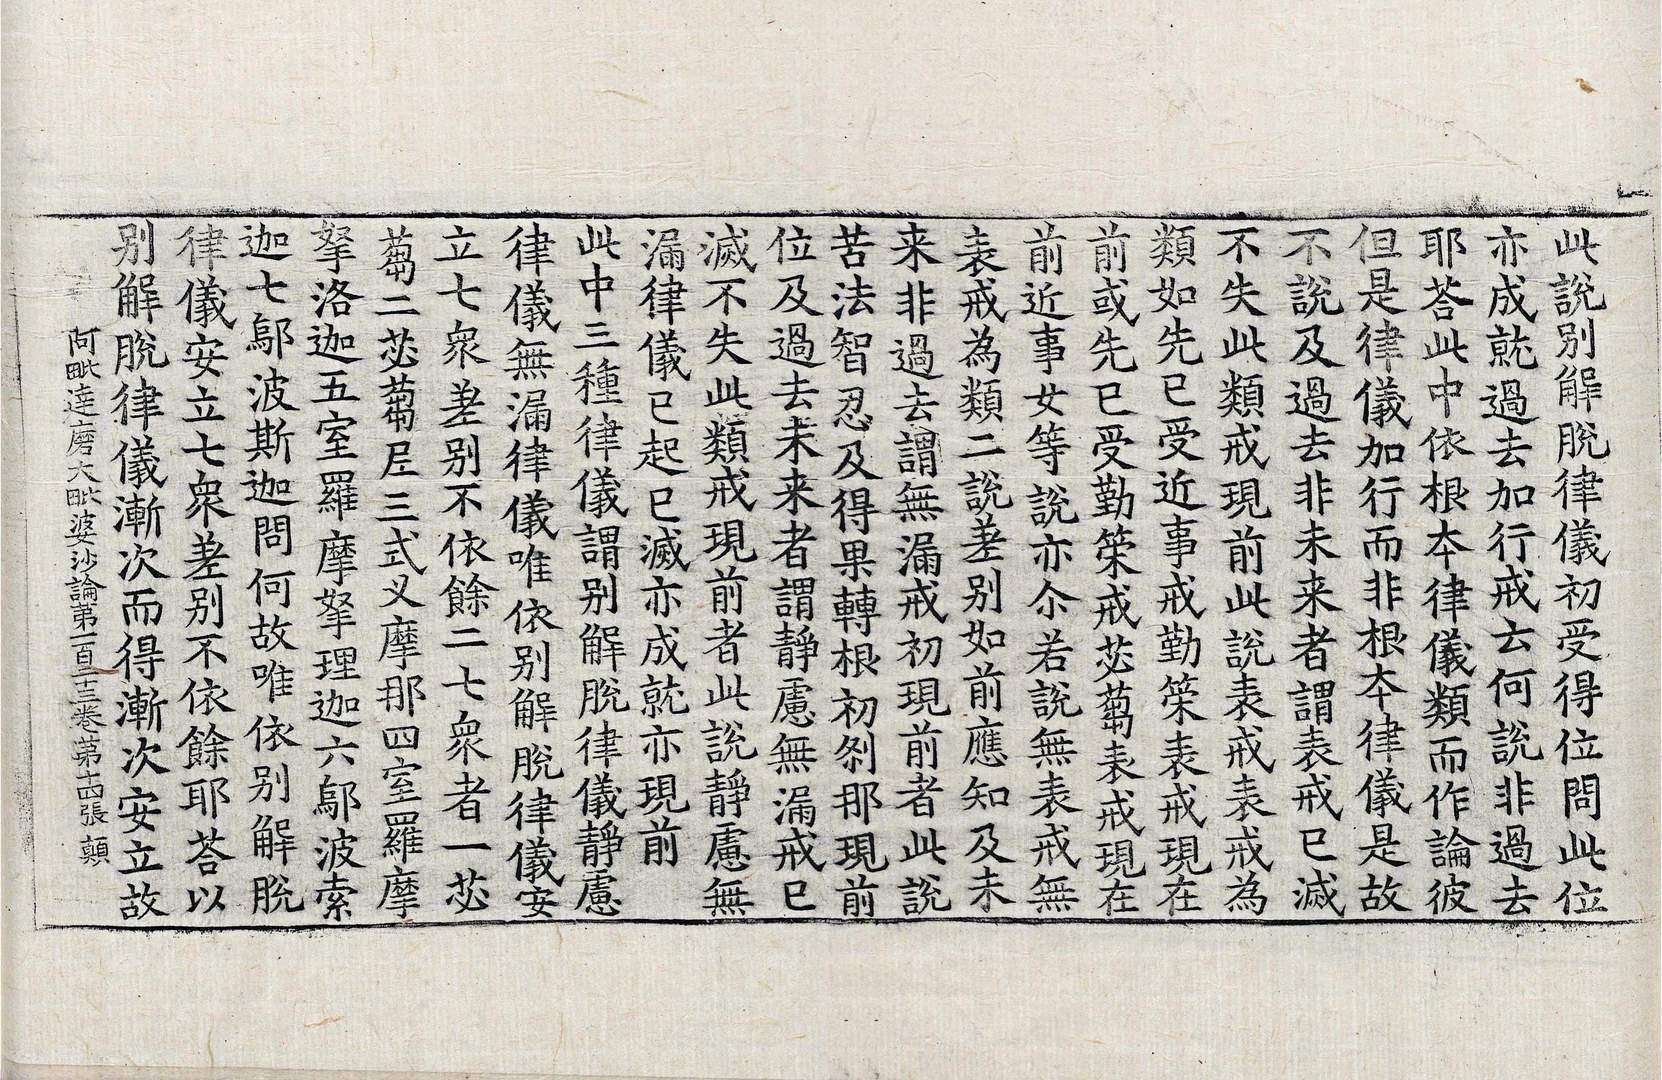 此說別解脫律儀初受得位問此位
亦成就過去加行戒云何說非過去
耶荅此中依根本律儀類而作論彼
但是律儀加行而非根本律儀是故
不說及過去非未来者謂表戒已滅
不失此類戒現前此說表戒表戒為
類如先已受近事戒勤策表戒現在
前或先已受勤策戒苾蒭表戒現在
前近事女等說亦尒若說無表戒無
表戒為類二說差別如前應知及未
来非過去謂無漏戒初現前者此說
苦法智忍及得果轉根初剎那現前
位及過去未来者謂靜慮無漏戒已
滅不失此類戒現前者此說靜慮無
漏律儀已起已滅亦成就亦現前
此中三種律儀謂別解脫律儀靜慮
律儀無漏律儀唯依別解脫律儀安
立七衆差別不依餘二七衆者一苾
蒭二苾蒭尼三式叉摩那四室羅摩
拏洛迦五室羅摩拏理迦六鄔波索
迦七鄔波斯迦問何故唯依別解脫
律儀安立七衆差別不依餘耶荅以
別解脫律儀漸次而得漸次安立故
阿毗達磨大毗婆沙論第一百二十三卷第十四張 顛